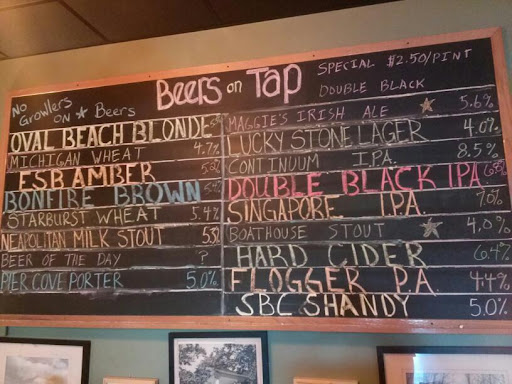 Beers on TAP
SPECIAL $2.50/PINT
DOUBLE BLACK
NO Growlers
ON ★ Beers
OVAL BEACH BLONDE
MICHIGAN WHEAT 4.7%
ESB AMBER
BONFIRE BROWN
STARBURST WHEAT 5.4%
NEAPOLITAN MILK STOUT
BEER OF THE DAY ?
PIER COVE PORTER 5.0%
MAGGIE'S IRISH ALE ☆ 5.6%
LUCKY STONE LAGER 4.0%
CONTINUUM I.P.A. 8.5%
DOUBLE BLACK IPA
SINGAPORE I.P.A. 7.0%
BOATHOUSE STOUT ☆ 4.0%
HARD CIDER 6.4%
FLOGGER P.A. 4.4%
SBC SHANDY 5.0%